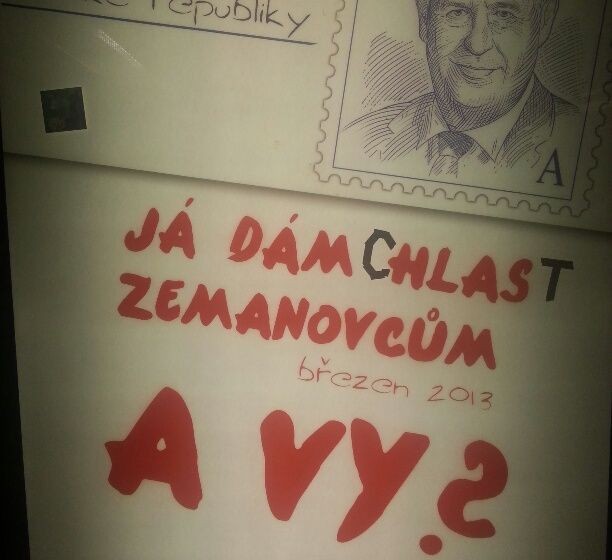 republiky
A
JÁ DÁM CHLAST
ZEMANOVCŮM
březen 2013
A VY?